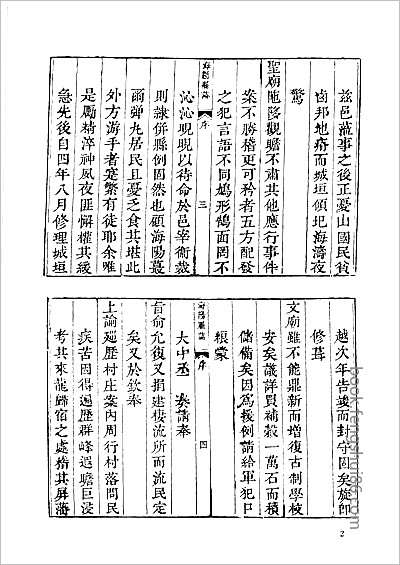 茲邑蒞事之後正憂山國民貧
齒邦地瘠而城垣傾圯海濤夜
驚
聖廟觀瞻不肅其他應行事件
案不勝稽更可矜者五方配發
之犯言語不同鳩形鵠面罔不
海陽縣誌 序 三
沁沁睍睍以待命於邑宰衛裁
則隸併縣例固然也顧海陽蕞
爾彈丸居民且憂其食其堪此
外方游手者寔繁有徒耶余雖
是勵精淬神夙夜匪懈權其緩
急先後自四年八月修理城垣
越次年告竣而封守固矣旋即
修葺
文廟雖不能鼎新而增復古制學校
安矣議詳買補穀一萬石而積
儲備矣因爲援例請給軍犯口
糧蒙
海陽縣誌 序 四
大中丞 奏請奉
旨俞允復又捐建棲流所而流民定
矣又於欽奉
上諭廵歷村庄案內周行村落問民
疾苦因得遍歷群峰遐瞻巨浸
考其來龍歸宿之處其屏藩
2